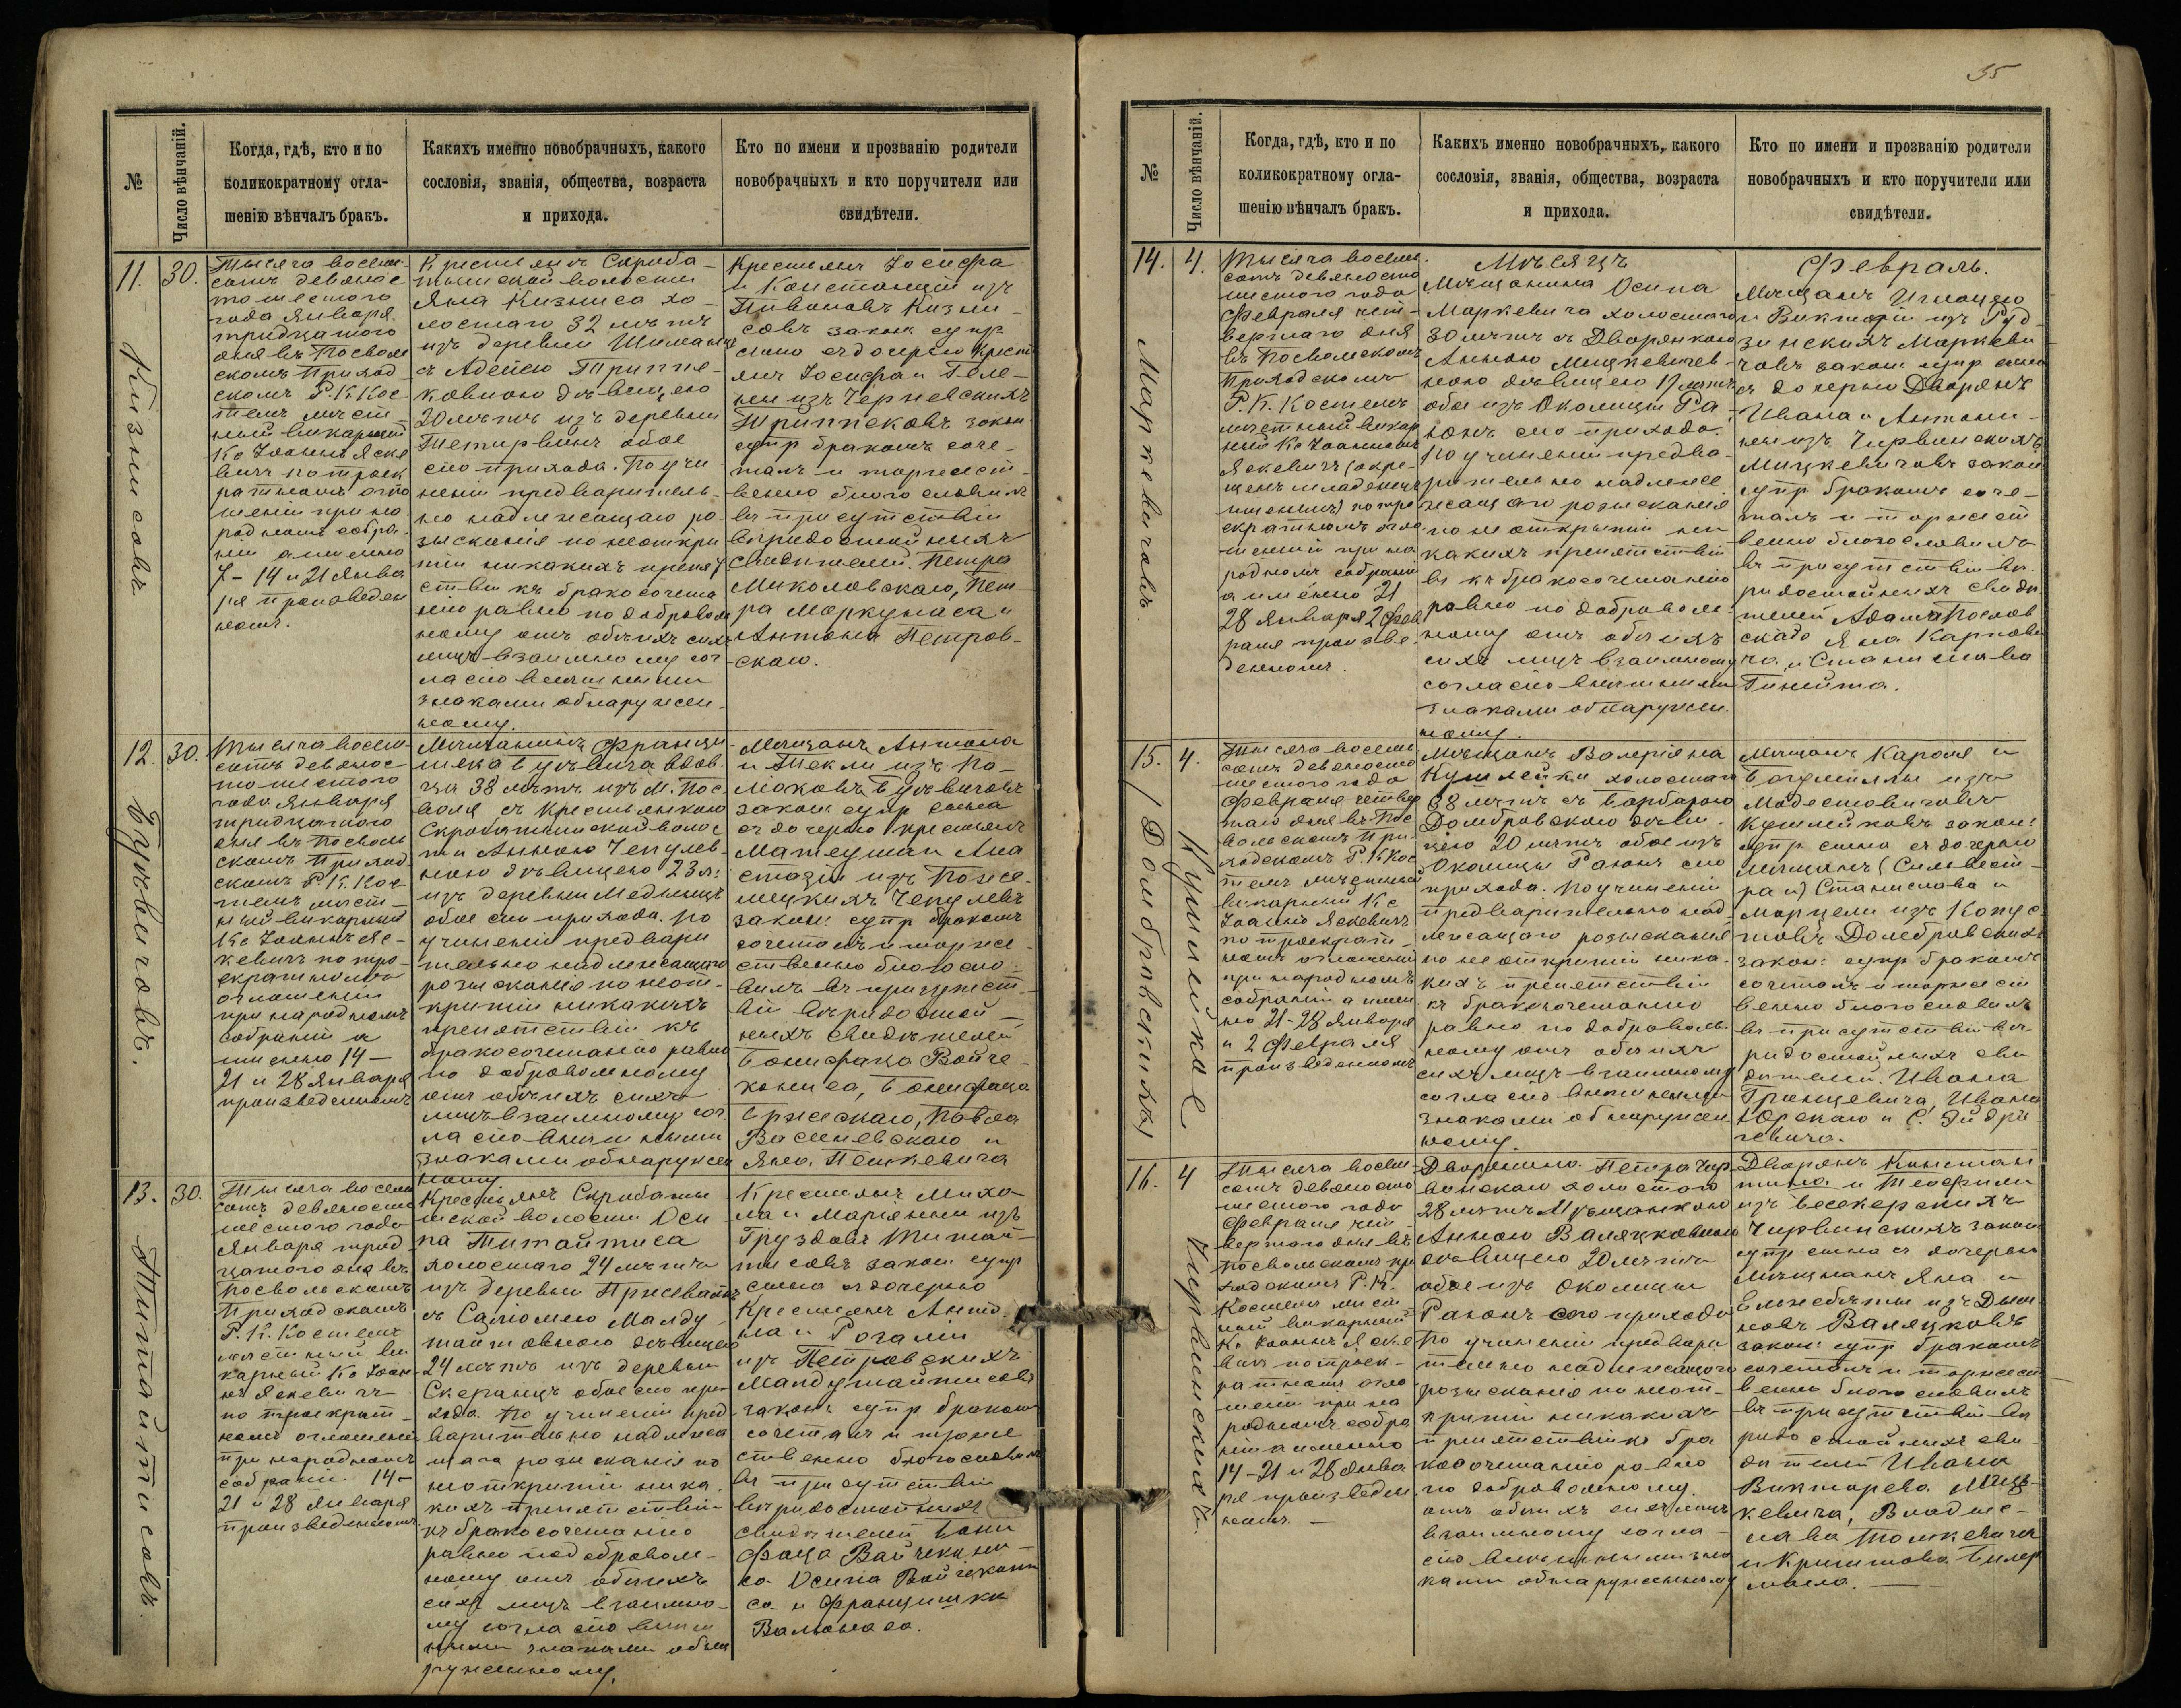 35
№
Число вѣнчаній.
Когда, гдѣ, кто и по
коликократному огла-
шенію вѣнчалъ бракъ.
Какихъ именно новобрачныхъ, какого
сословія, званія, общества, возраста
и прихода.
Кто по имени и прозванію родители
новобрачныхъ и кто поручители или
свидѣтели.
11.
30.
Кизнисовъ
Тысяча восем-
сотъ девянос
то шестого
года Января
тридцатого
дня въ Посволь
скомъ Приход
скомъ Р. К. Кос
телѣ мѣст-
ный викарный
Кс Іоаннъ Яске
вичъ по троек
ратномъ огла
шеніи при на
родномъ собра
ніи а именно
7 - 14 и 21 Янва
ря произведен
номъ.
Крестьянъ Скроба-
тишской волости
Яна Кизниса хо-
лостаго 32 лѣтъ
изъ деревни
съ
ковною дѣвицею
20 лѣтъ изъ деревни
обое
сего прихода. По учи
неніи предваритель-
но надлежащаго ро
зысканія по неоткры
тіи никакихъ препят
ствій къ бракосочета
нію равно по добровол
ному отъ обоихъ сихъ
лицъ взаимному сог
ласію внѣшними
знаками обнаружен
ному.
Крестьянъ Іосифа
и Констанціи изъ
Пивоновъ Кизни-
совъ закон супр
сына съ дочерью крест
янъ Іосифа и
изъ Черневскихъ
закон
супр бракомъ соче-
талъ и торжест-
венно благословилъ
въ присутствіи
вѣридостойныхъ
свидѣтелей Петра
Миколовскаго, Пет-
ра Моркунаса и
Антона Петров-
скаго.
12.
30.
Буйвичовъ.
Тысяча восем-
сотъ девянос-
то шестого
года Января
тридцатого
дня въ Посволь
скомъ Приход
скомъ Р. К. Кос-
телѣ мѣст-
ный викарный
Кс Іоаннъ Яс-
кевичъ по тро-
екратномъ
оглашеніи
при народномъ
собраніи а
именно 14 -
21 и 28 Января
произведенномъ
Мѣщанина Франци
шека Буйвича вдов
ца 38 лѣтъ изъ М. Пос
воля съ крестьянкою
Скробатишской волос
ти Анною Чепулев
ною дѣвицею 23 л:
изъ деревни
обое сего прихода. По
учиненіи предвари
тельно надлежащаго
розысканія по неот-
крытіи никакихъ
препятствій къ
бракосочетанію равно
по добровольному
отъ обоихъ сихъ
лицъ взаимному сог
ласію внѣшними
знаками обнаружен
ному.
Мѣщанъ Антона
и Текли изъ По-
Буйвичовъ
закон супр сына
съ дочерью крестьянъ
Матеуша и Ана
стазіи изъ
Чепулевъ
закон: супр бракомъ
сочеталъ и торже-
ственно благосло-
вилъ въ присутст-
віи вѣридостой-
ныхъ свидѣтелей
Бонифаца Войче-
кониса, Бонифаца
Бржескаго, Павла
Василевскаго и
Яна
13.
30.
Титайтисовъ.
Тысяча восем
сотъ девяносто
шестого года
Января трид-
цатого дня въ
Посвольскомъ
Приходскомъ
Р. К. Костелѣ
мѣстный ви
карный Кс Іоан-
нъ Яскевичъ
по троекрат-
номъ оглашеніи
при народномъ
собраніи. 14 -
21 и 28 Января
произведенномъ
Крестьянъ Скробаты
шской волости Оси
па Титайтиса
холостаго 24 лѣтъ
изъ деревни
съ Саломею Манду
тайтовною дѣвицею
24 лѣтъ изъ деревни
обое сего при-
хода. По учиненіи пред
варительно надлежа
щаго розысканія по
неоткрытіи ника
кихъ препятствій
къ бракосочетанію
равно по добровол-
ному отъ обоихъ
сихъ лицъ взаимно-
му согласію внѣш
ними знаками обна
руженному.
Крестьянъ Миха-
ла и Маріянны изъ
Груздовъ Титай-
тисовъ закон супр
сына съ дочерью
Крестьянъ Анто
на и Розаліи
изъ Петровскихъ
закон супр бракомъ
сочеталъ и торже
ственно благословилъ
въ присутствіи
вѣридостойныхъ
свидѣтелей Бони
фаца Войчекони-
са Осипа Войчекони
са и Францишка
Валюнаса.
№
Число вѣнчаній.
Когда, гдѣ, кто и по
коликократному огла-
шенію вѣнчалъ бракъ.
Какихъ именно новобрачныхъ, какого
сословія, званія, общества, возраста
и прихода.
Кто по имени и прозванію родители
новобрачныхъ и кто поручители или
свидѣтели.
14.
4.
Маркевичовъ
Тысяча восем
сотъ девяносто
шестого года
Февраля чет-
вертаго дня
въ Посвольскомъ
Приходскомъ
Р. К. Костелѣ
мѣстный викар
ный Кс Іоаннъ
Яскевичъ
по тро
екратномъ огла
шеніи при на
родномъ собраніи
а именно 21
28 Января 2 Фев
раля произве-
денномъ.
Мѣсяцъ
Мѣщанина Осипа
Маркевича холостаго
30 лѣтъ съ Дворянкою
Анною Мицкевичев-
ною дѣвицею 19 лѣтъ
обое изъ Околицы Ра
юнъ сего прихода.
По учиненіи предва-
рительно надлежа
жащаго розысканія
по неоткрытіи ни
какихъ препятствій
къ бракосочетанію
равно по доброволь-
ному отъ обоихъ
сихъ лицъ взаимному
согласію внѣшними
знаками обнаружен
ному.
Февраль.
Мѣщанъ Игнація
и Викторіи изъ Руд-
зинскихъ Маркеви
човъ закон супр сына
съ дочерью Дворянъ
Ивана и Антони-
ны изъ Чирвинскихъ
Мицкевичовъ закон
супр бракомъ соче-
талъ и торжест
венно благословилъ
въ присутствіи вѣ-
ридостойныхъ свидѣ
телей Адама
Яна Карпови
ча, и Станислава
15.
4.
Кушлейко
/Домбровскихъ/
Тысяча восемь
сотъ девяносто
шестого года
Февраля четвер
таго дня въ Пос
вольскомъ При-
ходскомъ Р. К. Кос
телѣ мѣстный
викарный Кс
Іоаннъ Яскевичъ
по троекрат-
номъ оглашеніи
при народномъ
собраніи а имен
но 21-28 Января
и 2 Февраля
произведенномъ
Мѣщанъ Валеріяна
Кушлейки холостаго
38 лѣтъ съ Барбарою
Домбровскою дѣви-
цею 20 лѣтъ обое изъ
Околицы Раюнъ сего
прихода. По учиненіи
предварительно над
лежащаго розысканія
по неоткрытіи ника-
кихъ препятствій
къ бракосочетанію
равно по доброволь-
ному отъ обоихъ
сихъ лицъ взаимному
согласію внѣшними
знаками обнаружен
ному.
Мѣщанъ Кароля и
Богумилы изъ
Модестовичовъ
Кушлейковъ закон:
супр сына съ дочерью
мѣщанъ (Сильвест-
ра и) Станислава и
Марцели изъ
Домбровскихъ
закон: супр бракомъ
сочеталъ и торжест
венно благословилъ
въ присутствіи вѣ-
ридостойныхъ сви
дѣтелей. Ивана
Ивана
Юрскаго и С.
16.
4
Чирвинскихъ.
Тысяча восем-
сотъ девяносто
шестого года
Февраля чет
вертаго дня въ
Посвольскомъ при
ходскомъ Р. К.
Костелѣ мѣст
ный викарный
Кс Іоаннъ Яске
вичъ по троек-
ратномъ огла
шеніи при на
родномъ собра
ніи а именно
14 - 21 и 28 Янва
ря произведен
номъ. —
Дворянина Петра Чир
винскаго холостого
28 лѣтъ съ Мѣщанкою
Анною Валяцковною
дѣвицею 20 лѣтъ
обое изъ Околицы
Раюнъ сего прихода
По учиненіи предвари
тельно надлежащаго
розысканія по неот-
крытіи никакихъ
препятствій къ бра
косочетанію равно
по добровольному
отъ обоихъ сихъ лицъ
взаимному согла-
сію внѣшними зна
ками обнаруженному
Дворянъ Констан
тина и Теофили
изъ
Чирвинскихъ закон
супр сына съ дочерью
Мѣщанъ Яна и
Эльжбѣты изъ
Валяцковъ
закон супр бракомъ
сочеталъ и торжест
венно благословилъ
въ присутствіи вѣ
ридостойныхъ сви
дѣтелей Ивана
Викторова Миц-
кевича, Владис-
лава Томкевича
и